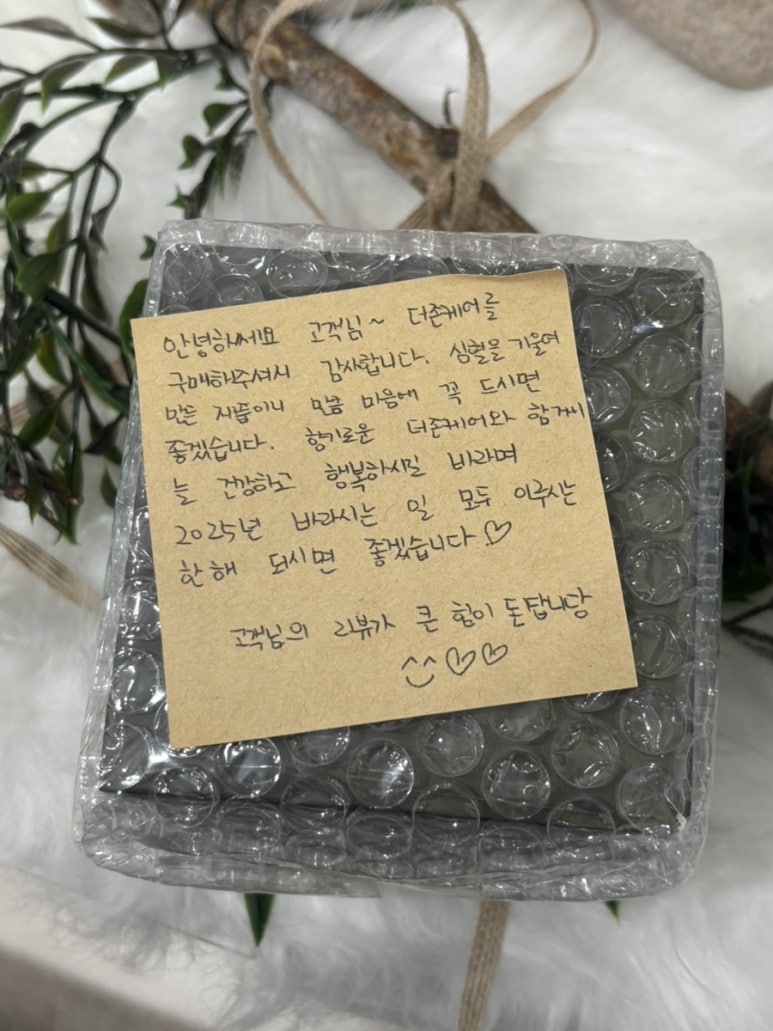 안녕하세요 고객님~ 더존케어를
구매해주셔서 감사합니다. 심혈을 기울여
만든 제품이니 만큼 마음에 꼭 드시면
좋겠습니다. 향기로운 더존케어와 함께
늘 건강하고 행복하시길 바라며
2025년 바라시는 일 모두 이루시는
한해 되시면 좋겠습니다♡
고객님의 리뷰가 큰 힘이 돈답니당
^^ ♡♡